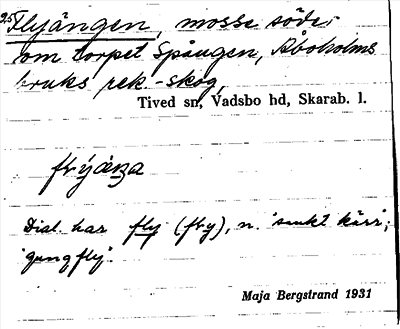 25 Flyängen, mosse söder
om torpet Spången, Åboholms
bruks rek.-skog,
Tived sn, Vadsbo hd, Skarab. l.
Dial. har fly (fly), n. 'sankt kärr',
'gungfly'.
Maja Bergstrand 1931